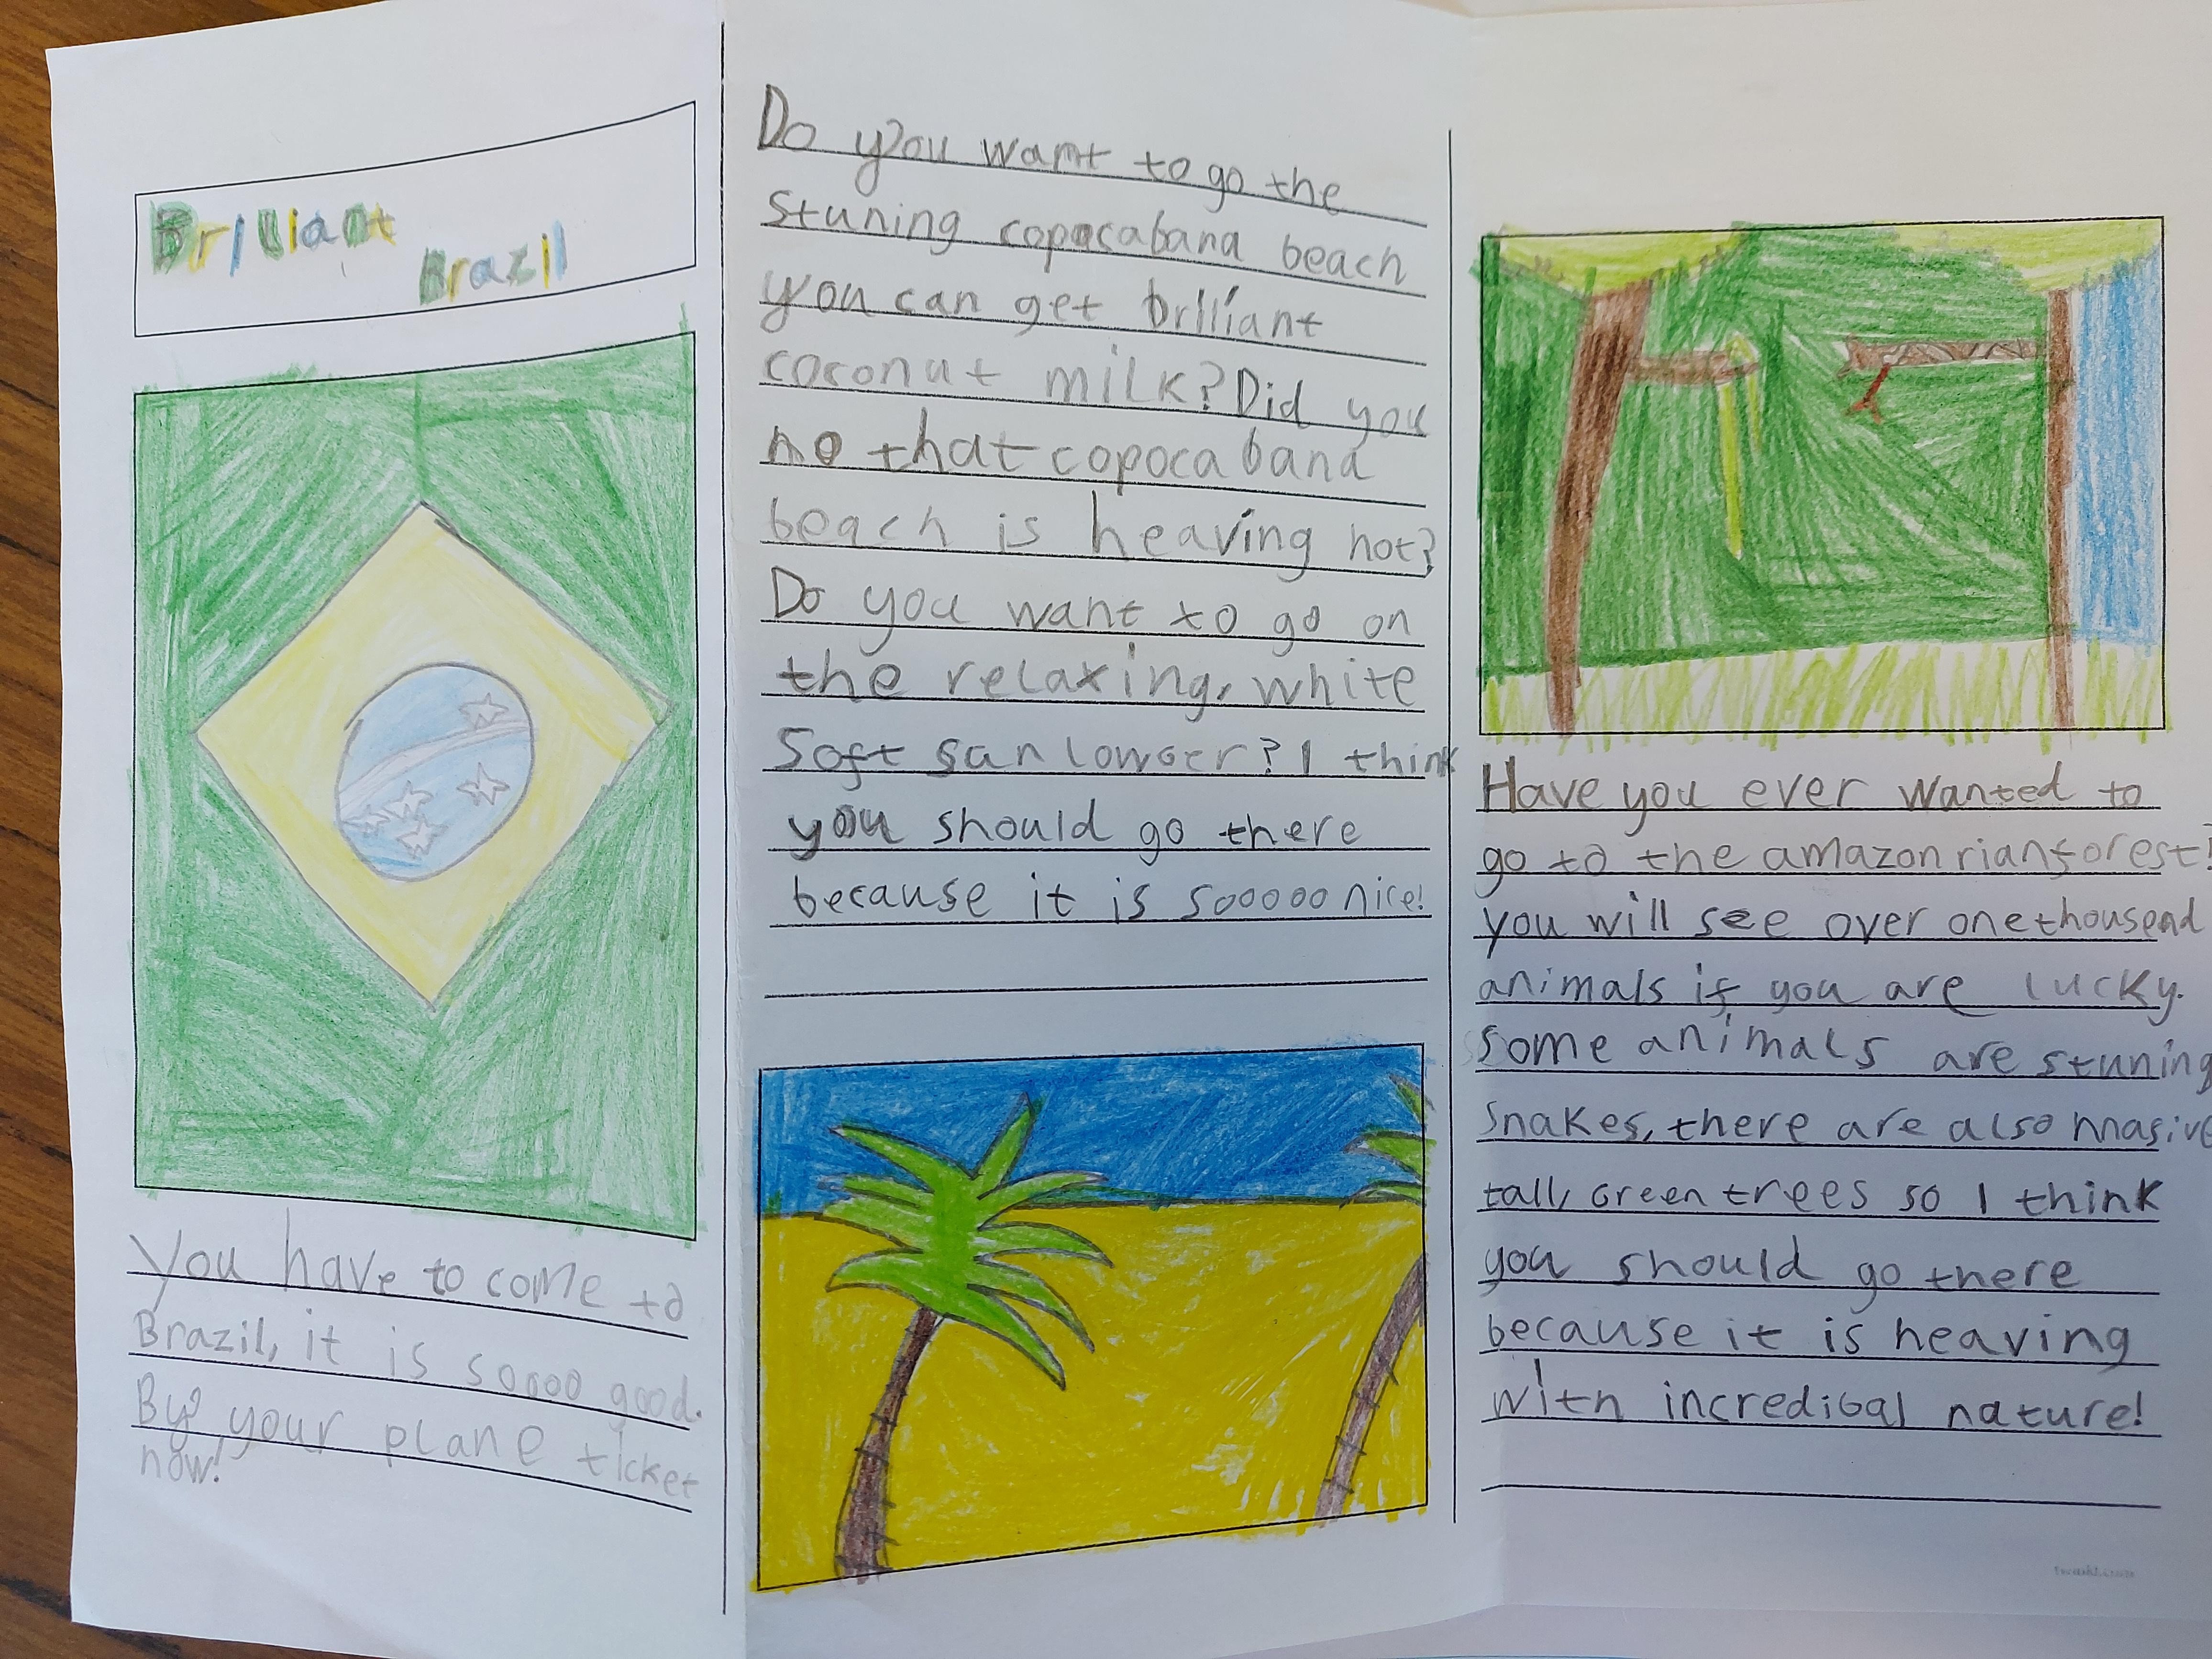 Brlliant
Brazil
You have to come to
Brazil, it is soooo good.
By your plane ticket
now!
Do you want to go the
stuning copacabana beach
you can get brlliant
coconut milk? Did you
no that copocabana
beach is heaving hot?
Do you want to go on
the relaxing, white
Soft san lownger? I think
you should go there
because it is sooooo nice!
Have you ever wanted to
go to the amazon rianforest?
you will see over one thousend
animals if you are lucky.
Some animals are stuning
snakes, there are also masive
tall, Green trees so I think
you should go there
because it is heaving
with incredibal nature!